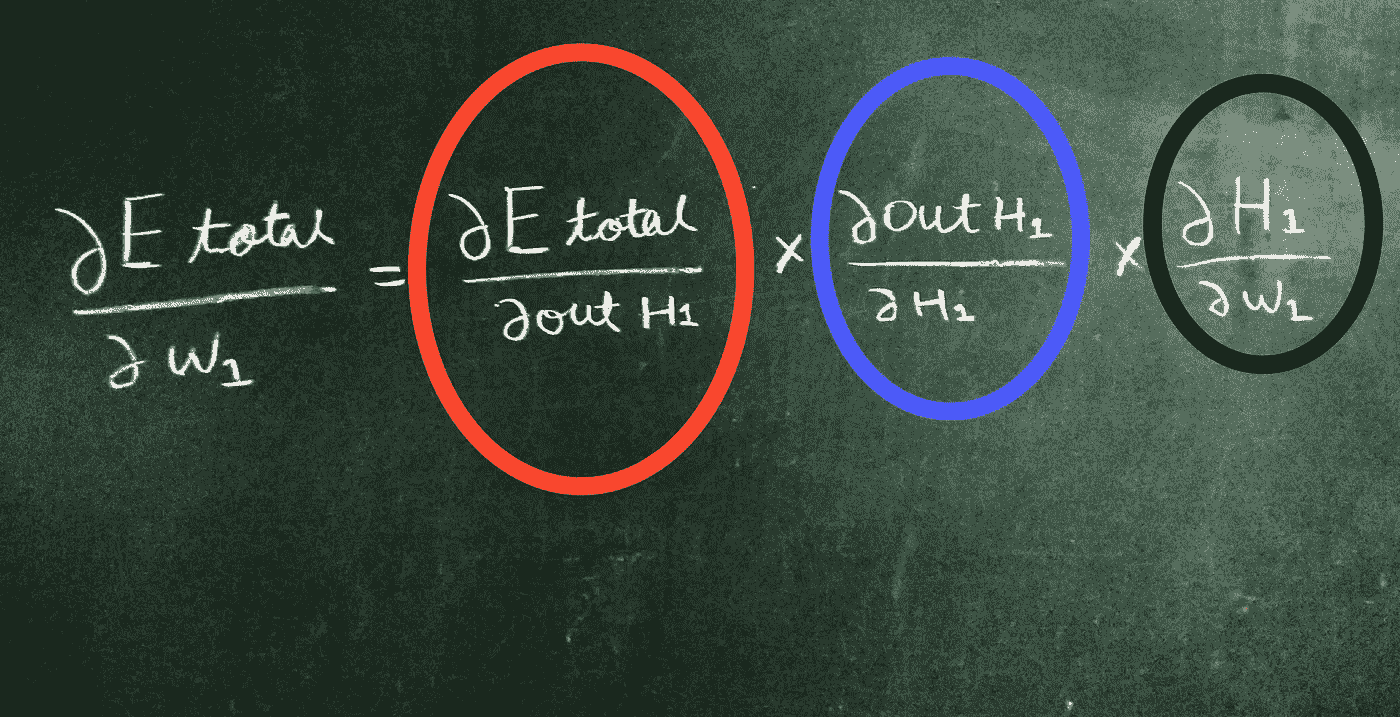 ∂E total / ∂W₁ = ∂E total / ∂out H₁ × ∂out H₁ / ∂H₁ × ∂H₁ / ∂W₁